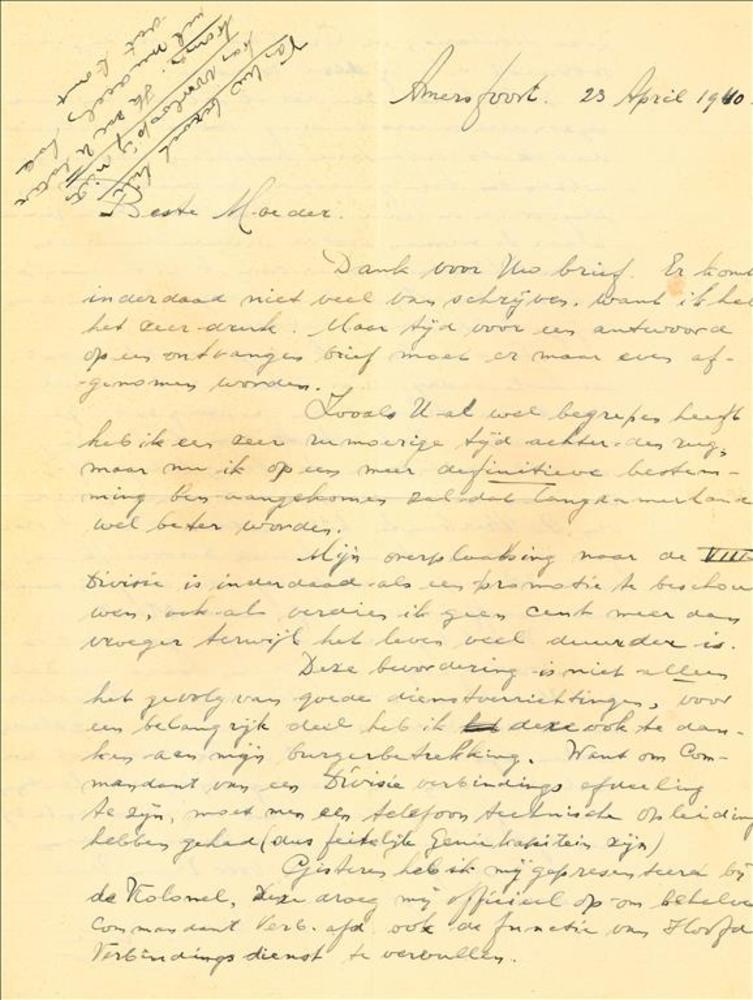 Amersfoort. 23 April 1940.
Beste Moeder.
Dank voor Uw brief. Er komt
inderdaad niet veel van schrijven, want ik heb
het zeer druk. Maar tijd voor een antwoord
op een ontvangen brief moet er maar even af-
-genomen worden.
Zooals U al wel begrepen heeft
heb ik een zeer rumoerige tijd achter den rug,
maar nu ik op een meer definitieve bestem-
ming ben aangekomen zal dat langzamerhand
wel beter worden.
Mijn overplaatsing naar de VIII
Divisie is inderdaad als een promotie te beschou
wen, ook al verdien ik geen cent meer dan
vroeger terwijl het leven veel duurder is.
Deze bevordering is niet alleen
het gevolg van goede dienstverrichtingen, voor
een belangrijk deel heb ik deze ook te dan-
ken aan mijn burgerbetrekking. Want om Com-
mandant van een Divisie verbindings afdeeling
te zijn, moet men een telefoon technische opleiding
hebben gehad (dus feitelijk Genie kapitein zijn)
Gisteren heb ik mij gepresenteerd bij
de Kolonel. Deze droeg mij officieel op om behalve
Commandant Verb. afd. ook de functie van Hoofd
Verbindingsdienst te vervullen.